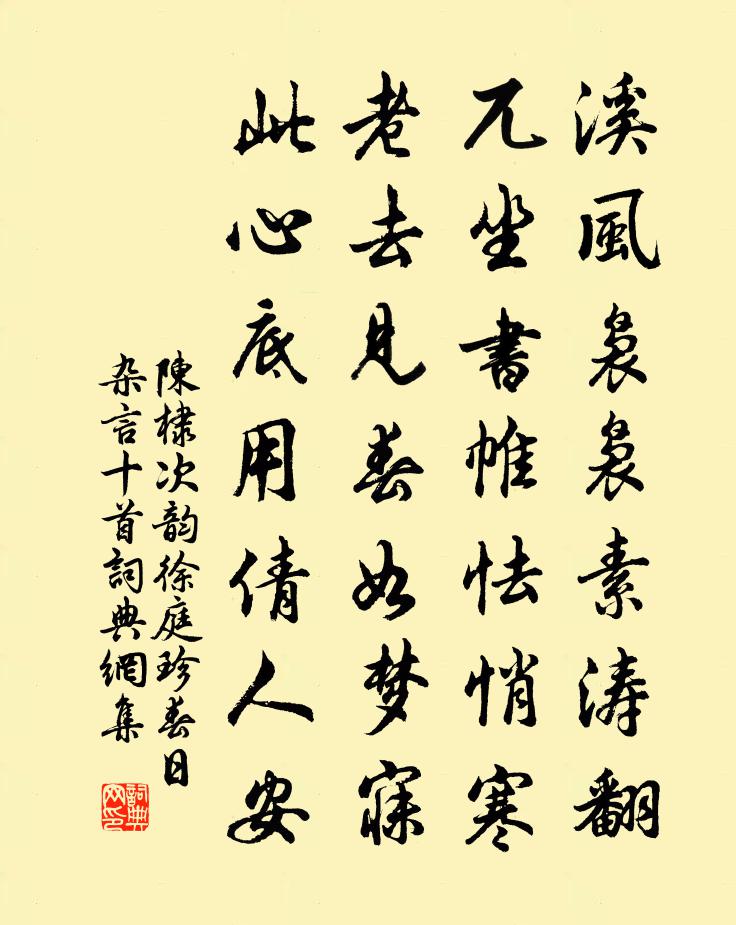 溪風裊裊素涛翻
兀坐書帷怯悄寒
老去見春如梦寐
此心底用倩人安
陳棣次韵徐庭珍春日
杂言十首詞典網集
詞典
网印